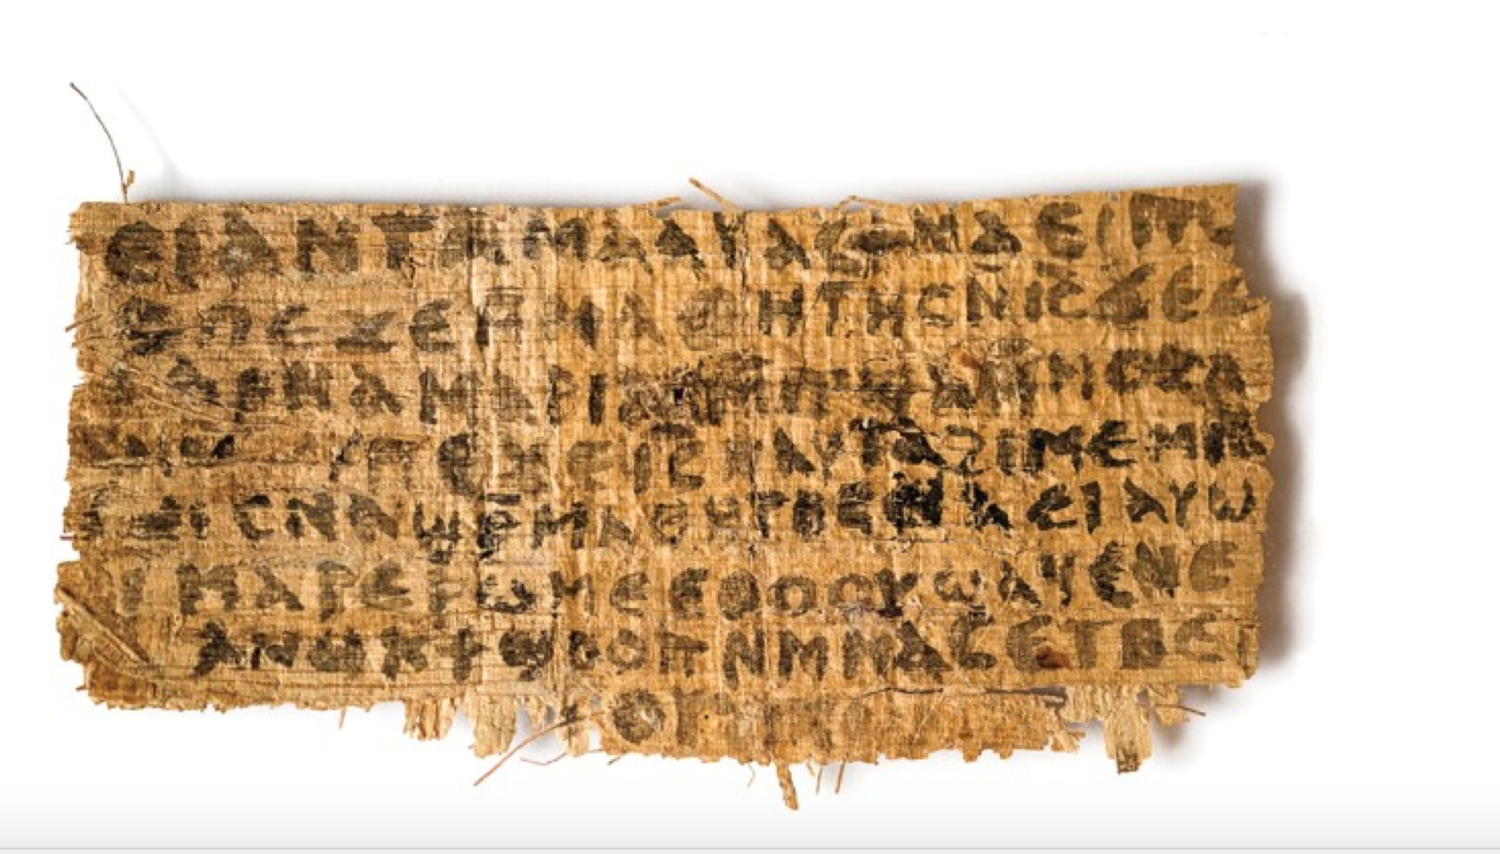 ⲉⲓ ⲁⲛ ⲧⲁⲙⲁⲁⲩ ⲁⲥϯ ⲛⲁⲉⲓ
ⲡⲉϫⲉ ⲙⲙⲁⲑⲏⲧⲏⲥ ⲛ̄ⲓ̄ⲥ̄ ϫⲉ
ⲁⲣⲛⲁ ⲙⲁⲣⲓⲁⲙ ⲙⲙⲟⲥ
ⲡⲉϫⲉ ⲓ̄ⲥ̄ ⲛⲁⲩ ⲧⲁϩⲓⲙⲉ ⲙⲛ
ⲥⲛⲁϣⲣ̄ⲙⲁⲑⲏⲧⲏⲥ ⲛⲁⲉⲓ ⲁⲩⲱ
ⲙⲁⲣⲉⲣⲱⲙⲉ ⲉⲑⲟⲟⲩ ϣⲁϥⲉⲛⲉ
ⲁⲛⲟⲕ ϯϣⲟⲟⲡ ⲛⲙⲙⲁⲥ ⲉⲧⲃⲉ